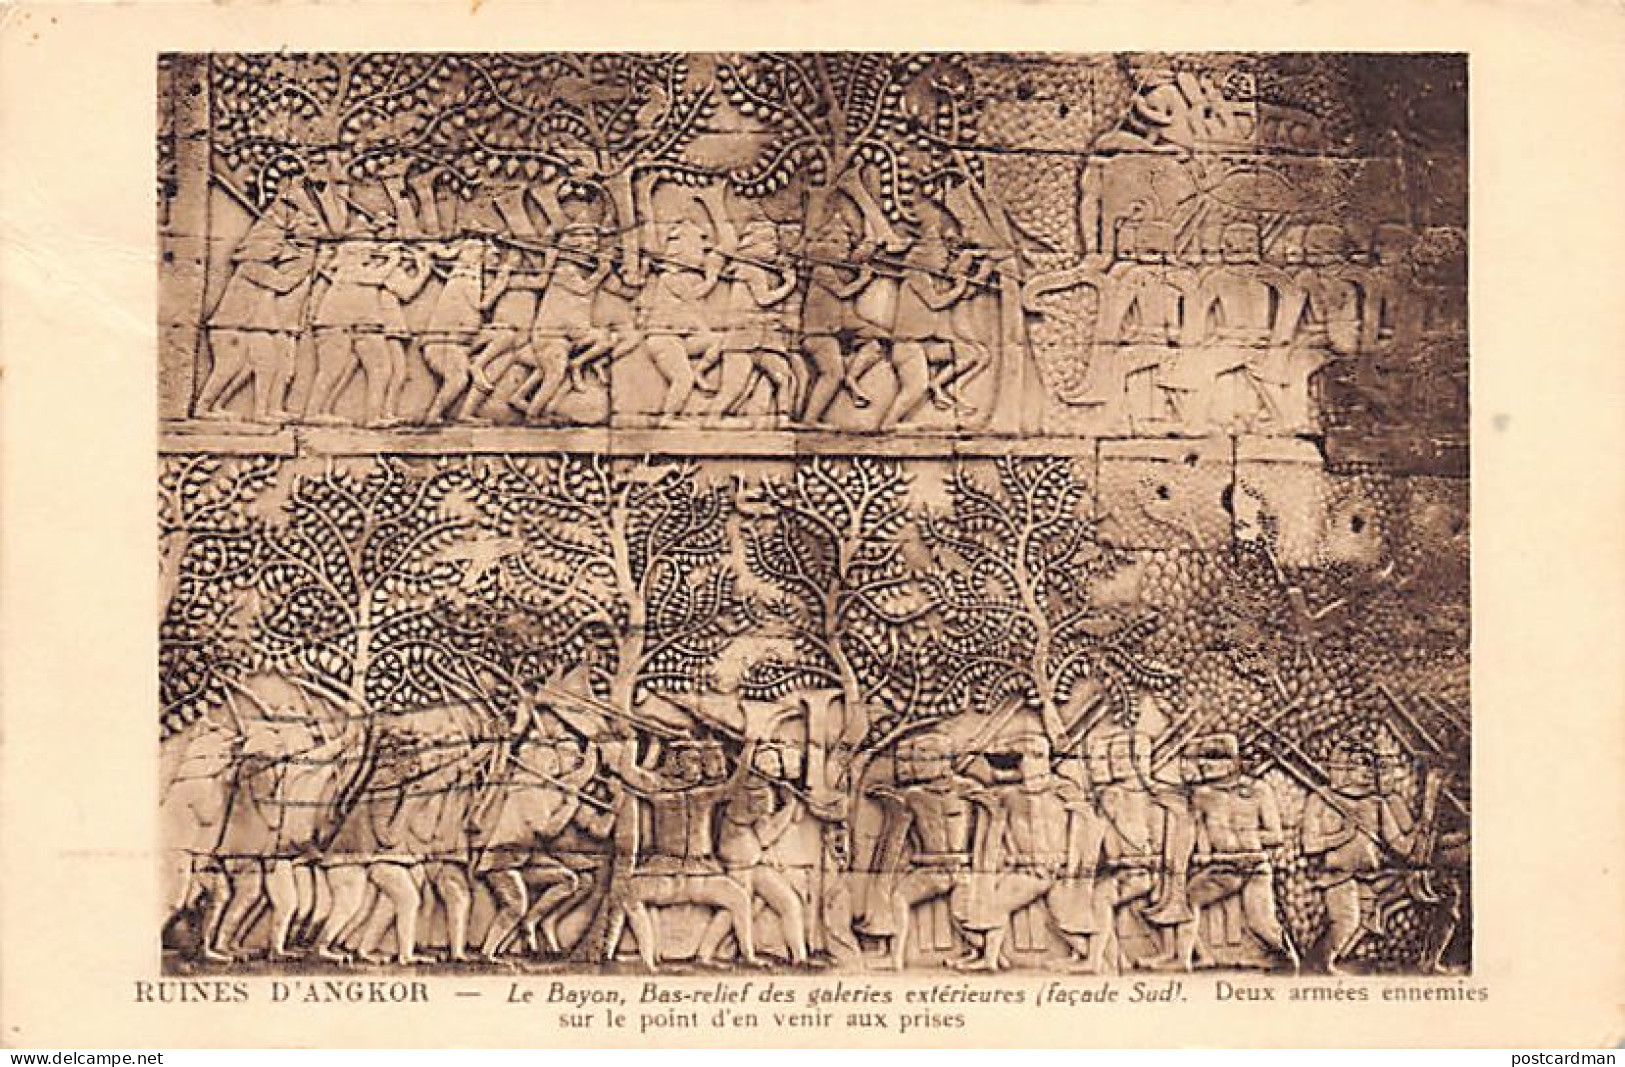 RUINES D'ANGKOR — Le Bayon, Bas-relief des galeries extérieures (façade Sud). Deux armées ennemies
sur le point d'en venir aux prises
https://www.delcampe.net
postcardman